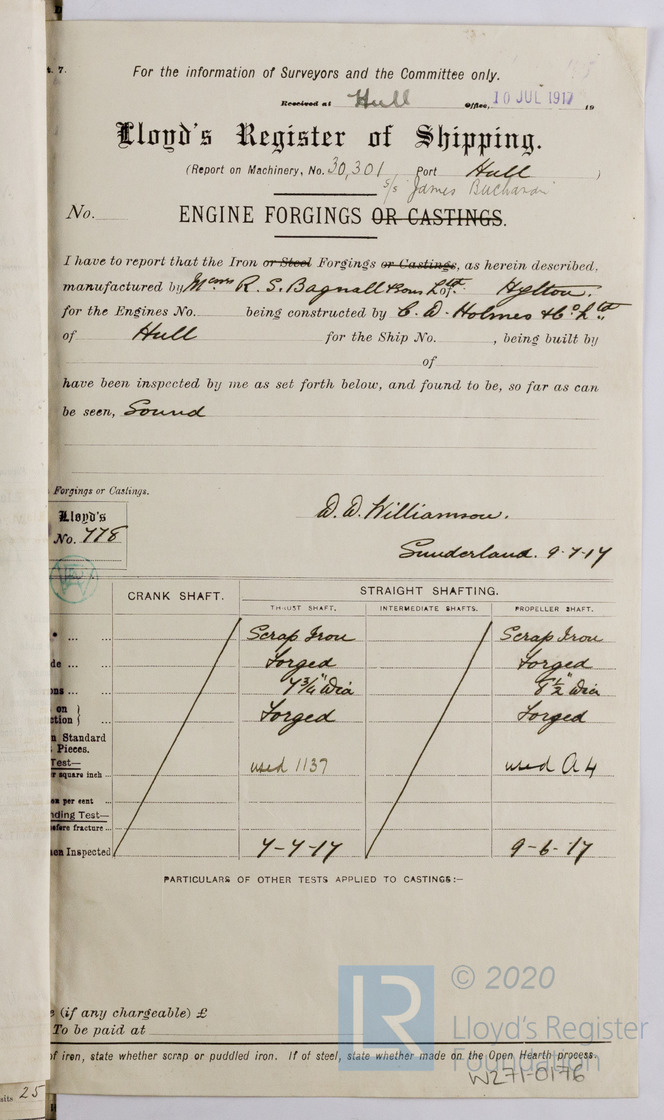 t. 7.
For the information of Surveyors and the Committee only.
Received at Hull Office, 10 JUL 1917 19
Lloyd's Register of Shipping.
(Report on Machinery, No. 30,301 Port Hull )
s/s "James Buchanan"
No.
ENGINE FORGINGS OR CASTINGS.
I have to report that the Iron or Steel Forgings or Castings, as herein described,
manufactured by Messrs R. S. Bagnall & Sons Ltd of Hylton.
for the Engines No. being constructed by C. D. Holmes & Co. Ltd.
of Hull for the Ship No. , being built by
of
have been inspected by me as set forth below, and found to be, so far as can
be seen, Sound
Forgings or Castings.
Lloyd's
No. 778
D. D. Williamson.
Sunderland. 9-7-17
CRANK SHAFT. STRAIGHT SHAFTING.
THRUST SHAFT. INTERMEDIATE SHAFTS. PROPELLER SHAFT.
Scrap Iron Scrap Iron
de ... Forged Forged
ons ... 7 3/4" Dia 8 1/2" Dia
on }
ction } ... Forged Forged
n Standard
Pieces.
Test—
r square inch ... used 1137 used A4
on per cent ...
nding Test—
efore fracture ...
en Inspected 7-7-17 9-6-17
PARTICULARS OF OTHER TESTS APPLIED TO CASTINGS:—
e (if any chargeable) £
To be paid at
of iron, state whether scrap or puddled iron. If of steel, state whether made on the Open Hearth process.
W271-0176
25
LR
© 2020
Lloyd's Register
Foundation